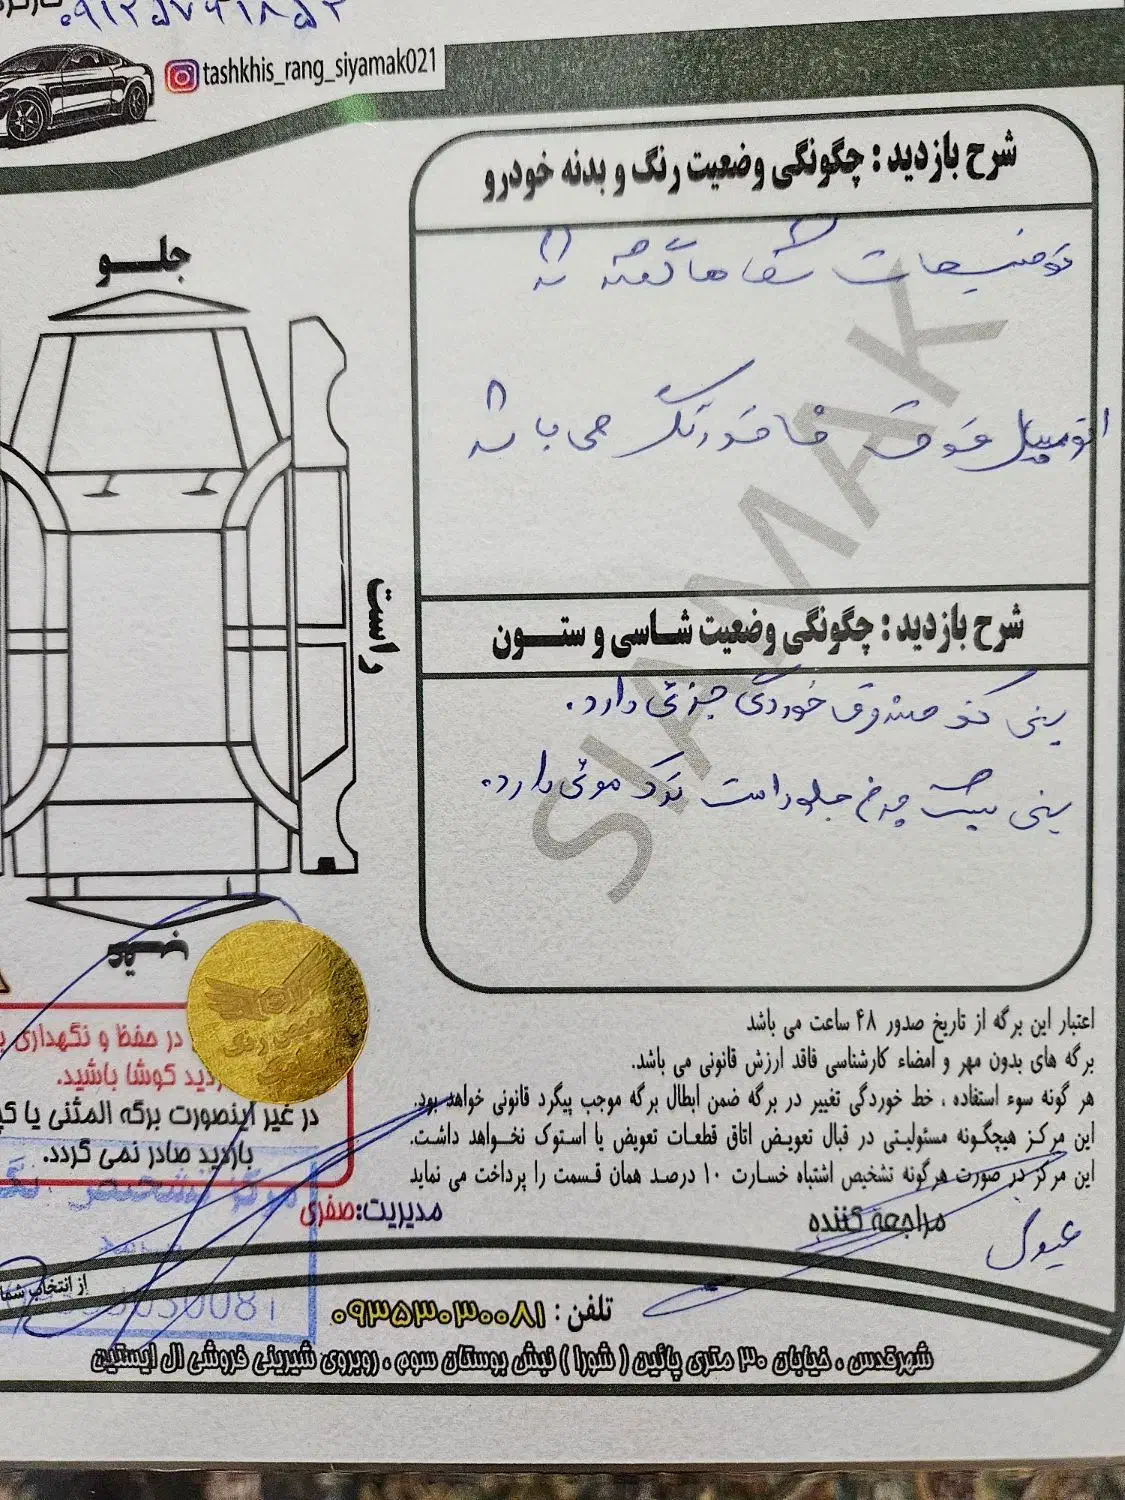 tashkhis_rang_siyamak021
شرح بازدید : چگونگی وضعیت رنگ و بدنه خودرو
توضیحات شفاها گفته شد
اتومبیل فوق فاقد رنگ می باشد
شرح بازدید : چگونگی وضعیت شاسی و ستون
سینی کف صندوق خوردگی جزئی دارد.
سینی پشت چرخ جلو راست ترک موئی دارد.
جلو
راست
عقب
SIAMAK
در حفظ و نگهداری
کوشا باشید.
در غیر اینصورت برگه المثنی یا
بازدید صادر نمی گردد.
اعتبار این برگه از تاریخ صدور ۴۸ ساعت می باشد
برگه های بدون مهر و امضاء کارشناسی فاقد ارزش قانونی می باشد.
هر گونه سوء استفاده ، خط خوردگی تغییر در برگه ضمن ابطال برگه موجب پیگرد قانونی خواهد بود.
این مرکز هیچگونه مسئولیتی در قبال تعویض اتاق قطعات تعویض یا استوک نخواهد داشت.
این مرکز در صورت هرگونه تشخیص اشتباه خسارت ۱۰ درصد همان قسمت را پرداخت می نماید
مدیریت:صفری
مراجعه کننده
از انتخاب شما
تلفن : ۰۹۳۵۳۰۳۰۰۸۱
شهرقدس ، خیابان ۳۰ متری پائین ( شورا ) نبش بوستان سوم ، روبروی شیرینی فروشی ال ایستین